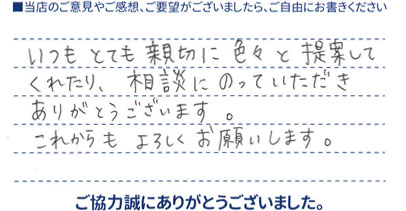 ■当店のご意見やご感想、ご要望がございましたら、ご自由にお書きください
いつも とても 親切に 色々と 提案して
くれたり、相談に のっていただき
ありがとうございます。
これからも よろしく お願いします。
ご協力誠にありがとうございました。